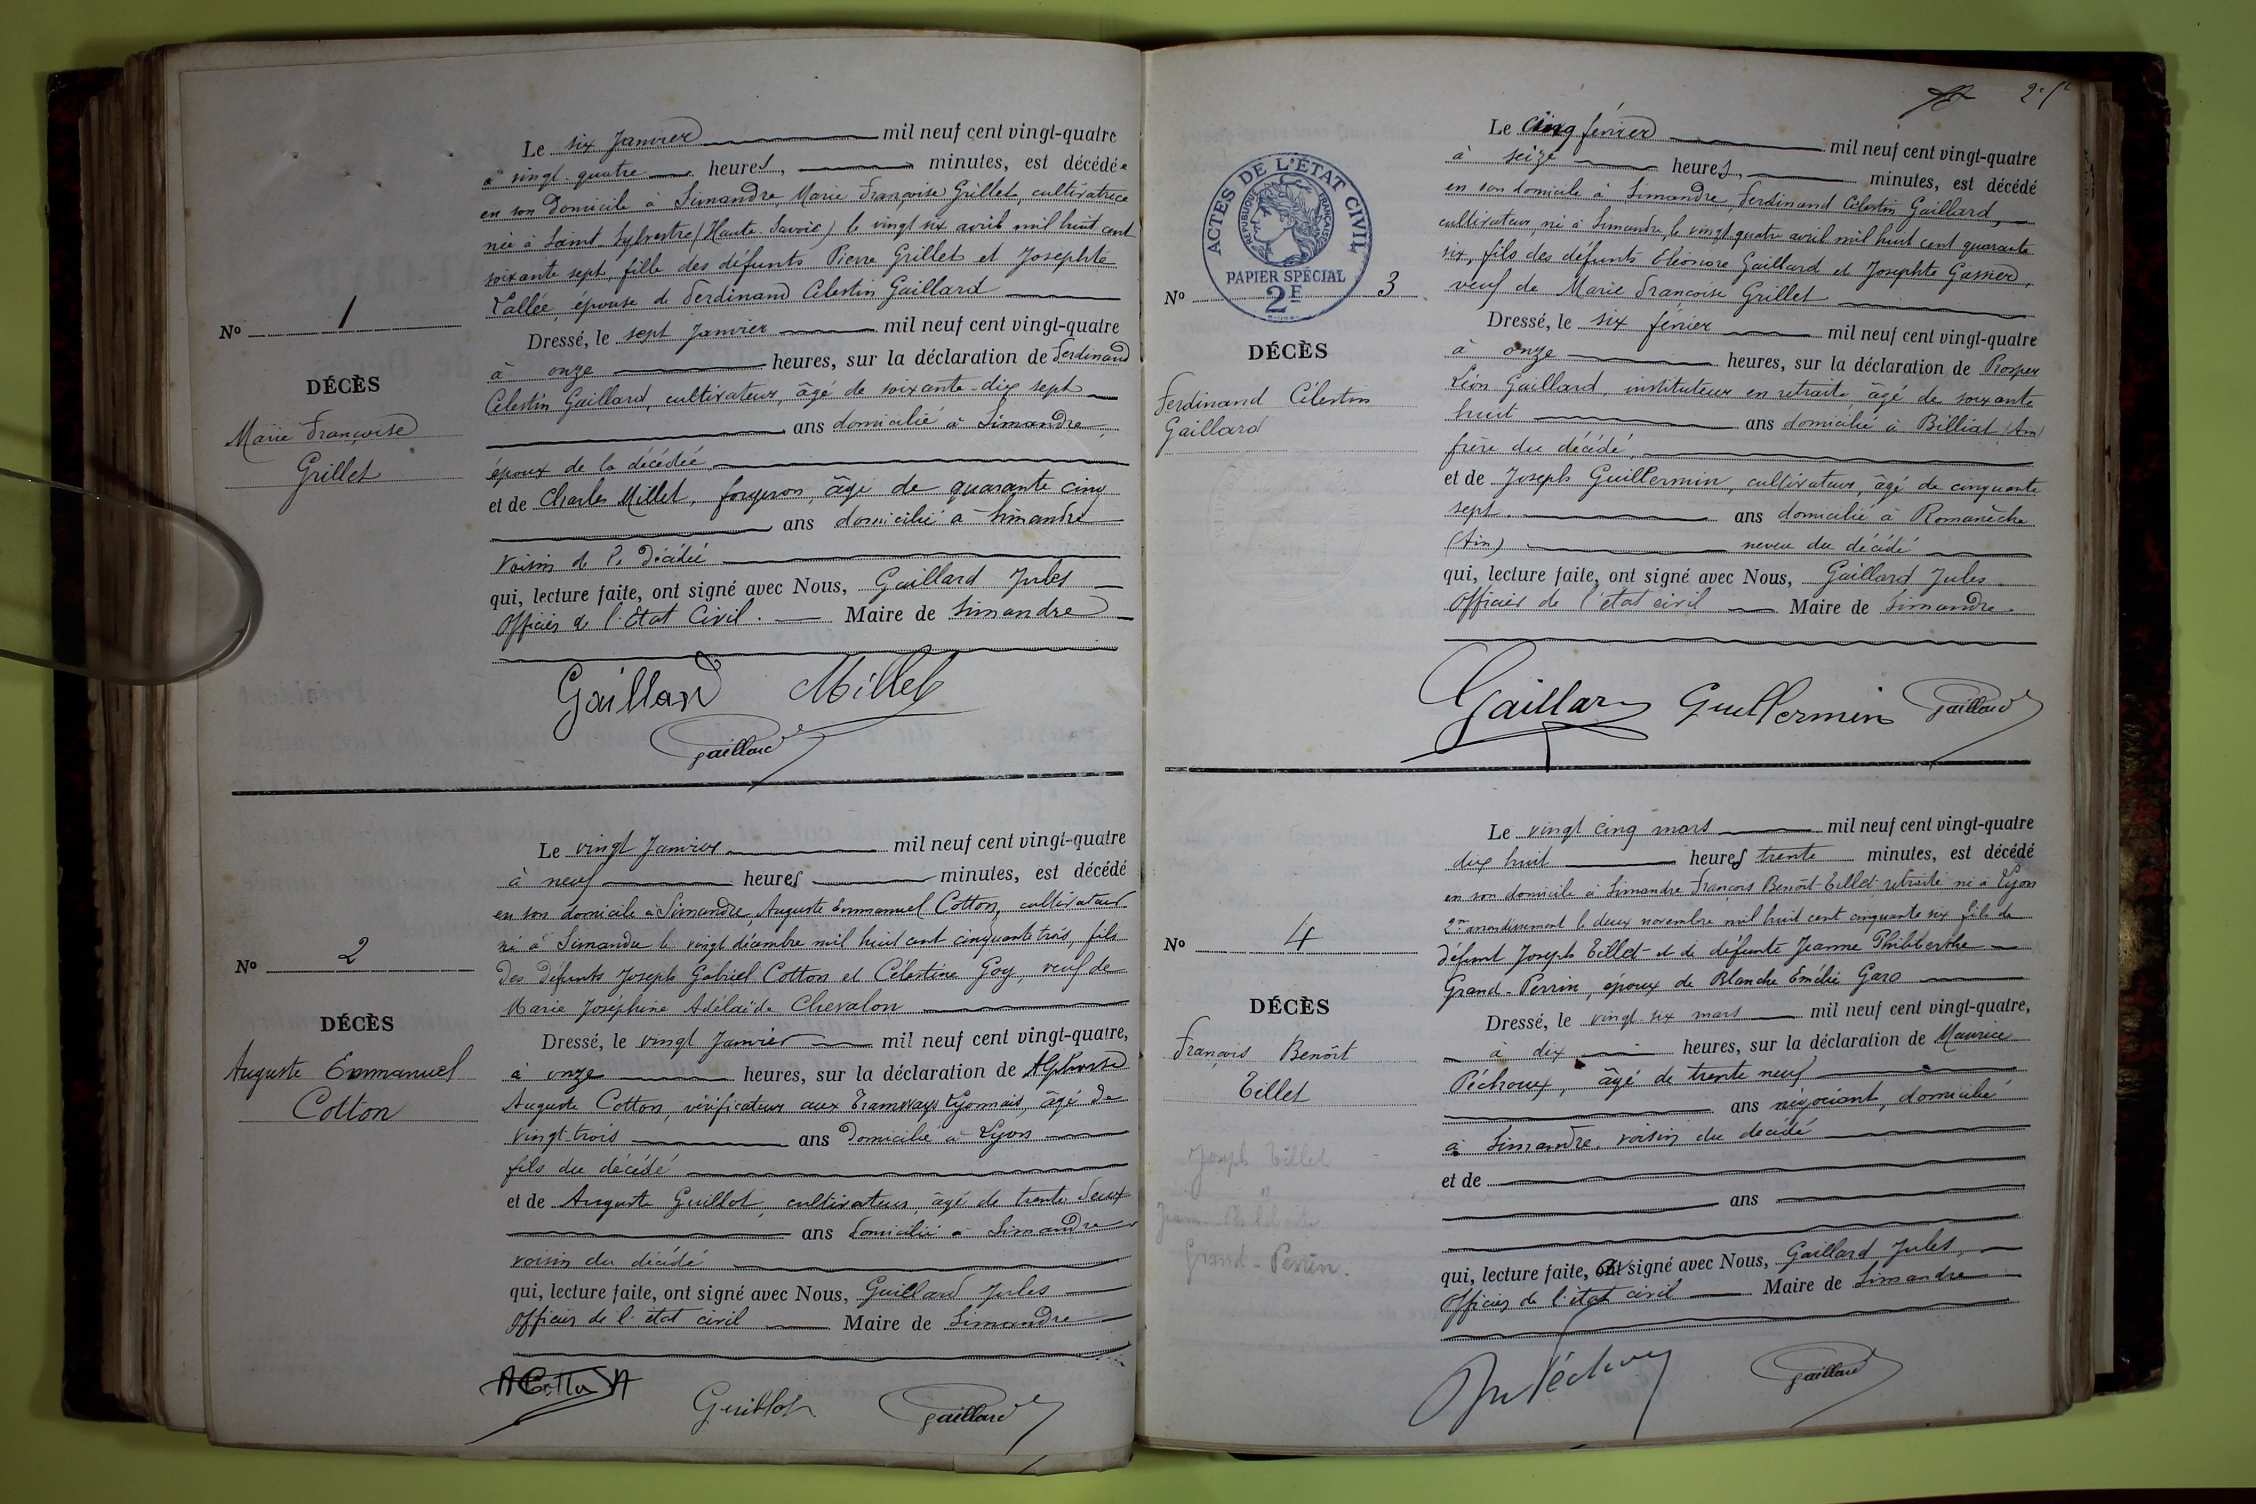 Le six Janvier mil neuf cent vingt-quatre
à vingt-quatre heures, minutes, est décédée
en son domicile à Simandre Marie Françoise Grillet, cultivatrice
née à Saint Sylvestre (Haute-Savoie) le vingt six avril mil huit cent
soixante sept, fille des défunts Pierre Grillet et Josephte
Vallée, épouse de Ferdinand Célestin Gaillard
No 1
DÉCÈS
Marie Françoise
Grillet
Dressé, le sept Janvier mil neuf cent vingt-quatre
à onze heures, sur la déclaration de Ferdinand
Célestin Gaillard, cultivateur, âgé de soixante-dix sept
ans domicilié à Simandre,
époux de la décédée
et de Charles Millet, forgeron, âgé de quarante cinq
ans domicilié à Simandre
voisin de la décédée
qui, lecture faite, ont signé avec Nous, Gaillard Jules
Officier de l'Etat Civil. Maire de Simandre
Gaillard Millet
Gaillard
Le vingt Janvier mil neuf cent vingt-quatre
à neuf heures minutes, est décédé
en son domicile à Simandre, Auguste Emmanuel Cotton, cultivateur
né à Simandre le vingt décembre mil huit cent cinquante trois, fils
des défunts Joseph Gabriel Cotton et Célestine Goy, veuf de
Marie Joséphine Adélaïde Chevalon
No 2
DÉCÈS
Auguste Emmanuel
Cotton
Dressé, le vingt Janvier mil neuf cent vingt-quatre,
à onze heures, sur la déclaration de Alphonse
Auguste Cotton, vérificateur aux Tramways Lyonnais, âgé de
vingt-trois ans domicilié à Lyon
fils du décédé
et de Auguste Guillot, cultivateur, âgé de trente deux
ans domicilié à Simandre
voisin du décédé
qui, lecture faite, ont signé avec Nous, Gaillard Jules
Officier de l'état civil Maire de Simandre
A Cotton Guillot Gaillard
2e f
Le cinq février mil neuf cent vingt-quatre
à seize heures, minutes, est décédé
en son domicile à Simandre, Ferdinand Célestin Gaillard,
cultivateur, né à Simandre, le vingt quatre avril mil huit cent quarante
six, fils des défunts Eléonore Gaillard et Josephte Gasnier,
veuf de Marie Françoise Grillet
ACTES DE L'ÉTAT CIVIL
RÉPUBLIQUE FRANÇAISE
PAPIER SPÉCIAL
2F
No 3
DÉCÈS
Ferdinand Célestin
Gaillard
Dressé, le six février mil neuf cent vingt-quatre
à onze heures, sur la déclaration de Prosper
Léon Gaillard, instituteur en retraite âgé de soixante
huit ans domicilié à Billiat (Ain)
frère du décédé,
et de Joseph Guillermin, cultivateur, âgé de cinquante
sept ans domicilié à Romanèche
(Ain) neveu du décédé
qui, lecture faite, ont signé avec Nous, Gaillard Jules
Officier de l'état civil Maire de Simandre
Gaillard Guillermin Gaillard
Le vingt cinq mars mil neuf cent vingt-quatre
dix huit heures trente minutes, est décédé
en son domicile à Simandre François Benoît Tillet retraité né à Lyon
2me arrondissement le deux novembre mil huit cent cinquante six fils de
défunt Joseph Tillet et de défunte Jeanne Philiberthe
Grand-Perrin, époux de Blanche Emélie Garo
No 4
DÉCÈS
François Benoît
Tillet
Joseph Tillet
Grand-Perrin.
Dressé, le vingt-six mars mil neuf cent vingt-quatre,
à dix heures, sur la déclaration de Maurice
Péchoux, âgé de trente neuf
ans négociant, domicilié
à Simandre, voisin du décédé
et de
ans
qui, lecture faite, signé avec Nous, Gaillard Jules,
Officier de l'état civil Maire de Simandre
Péchoux Gaillard